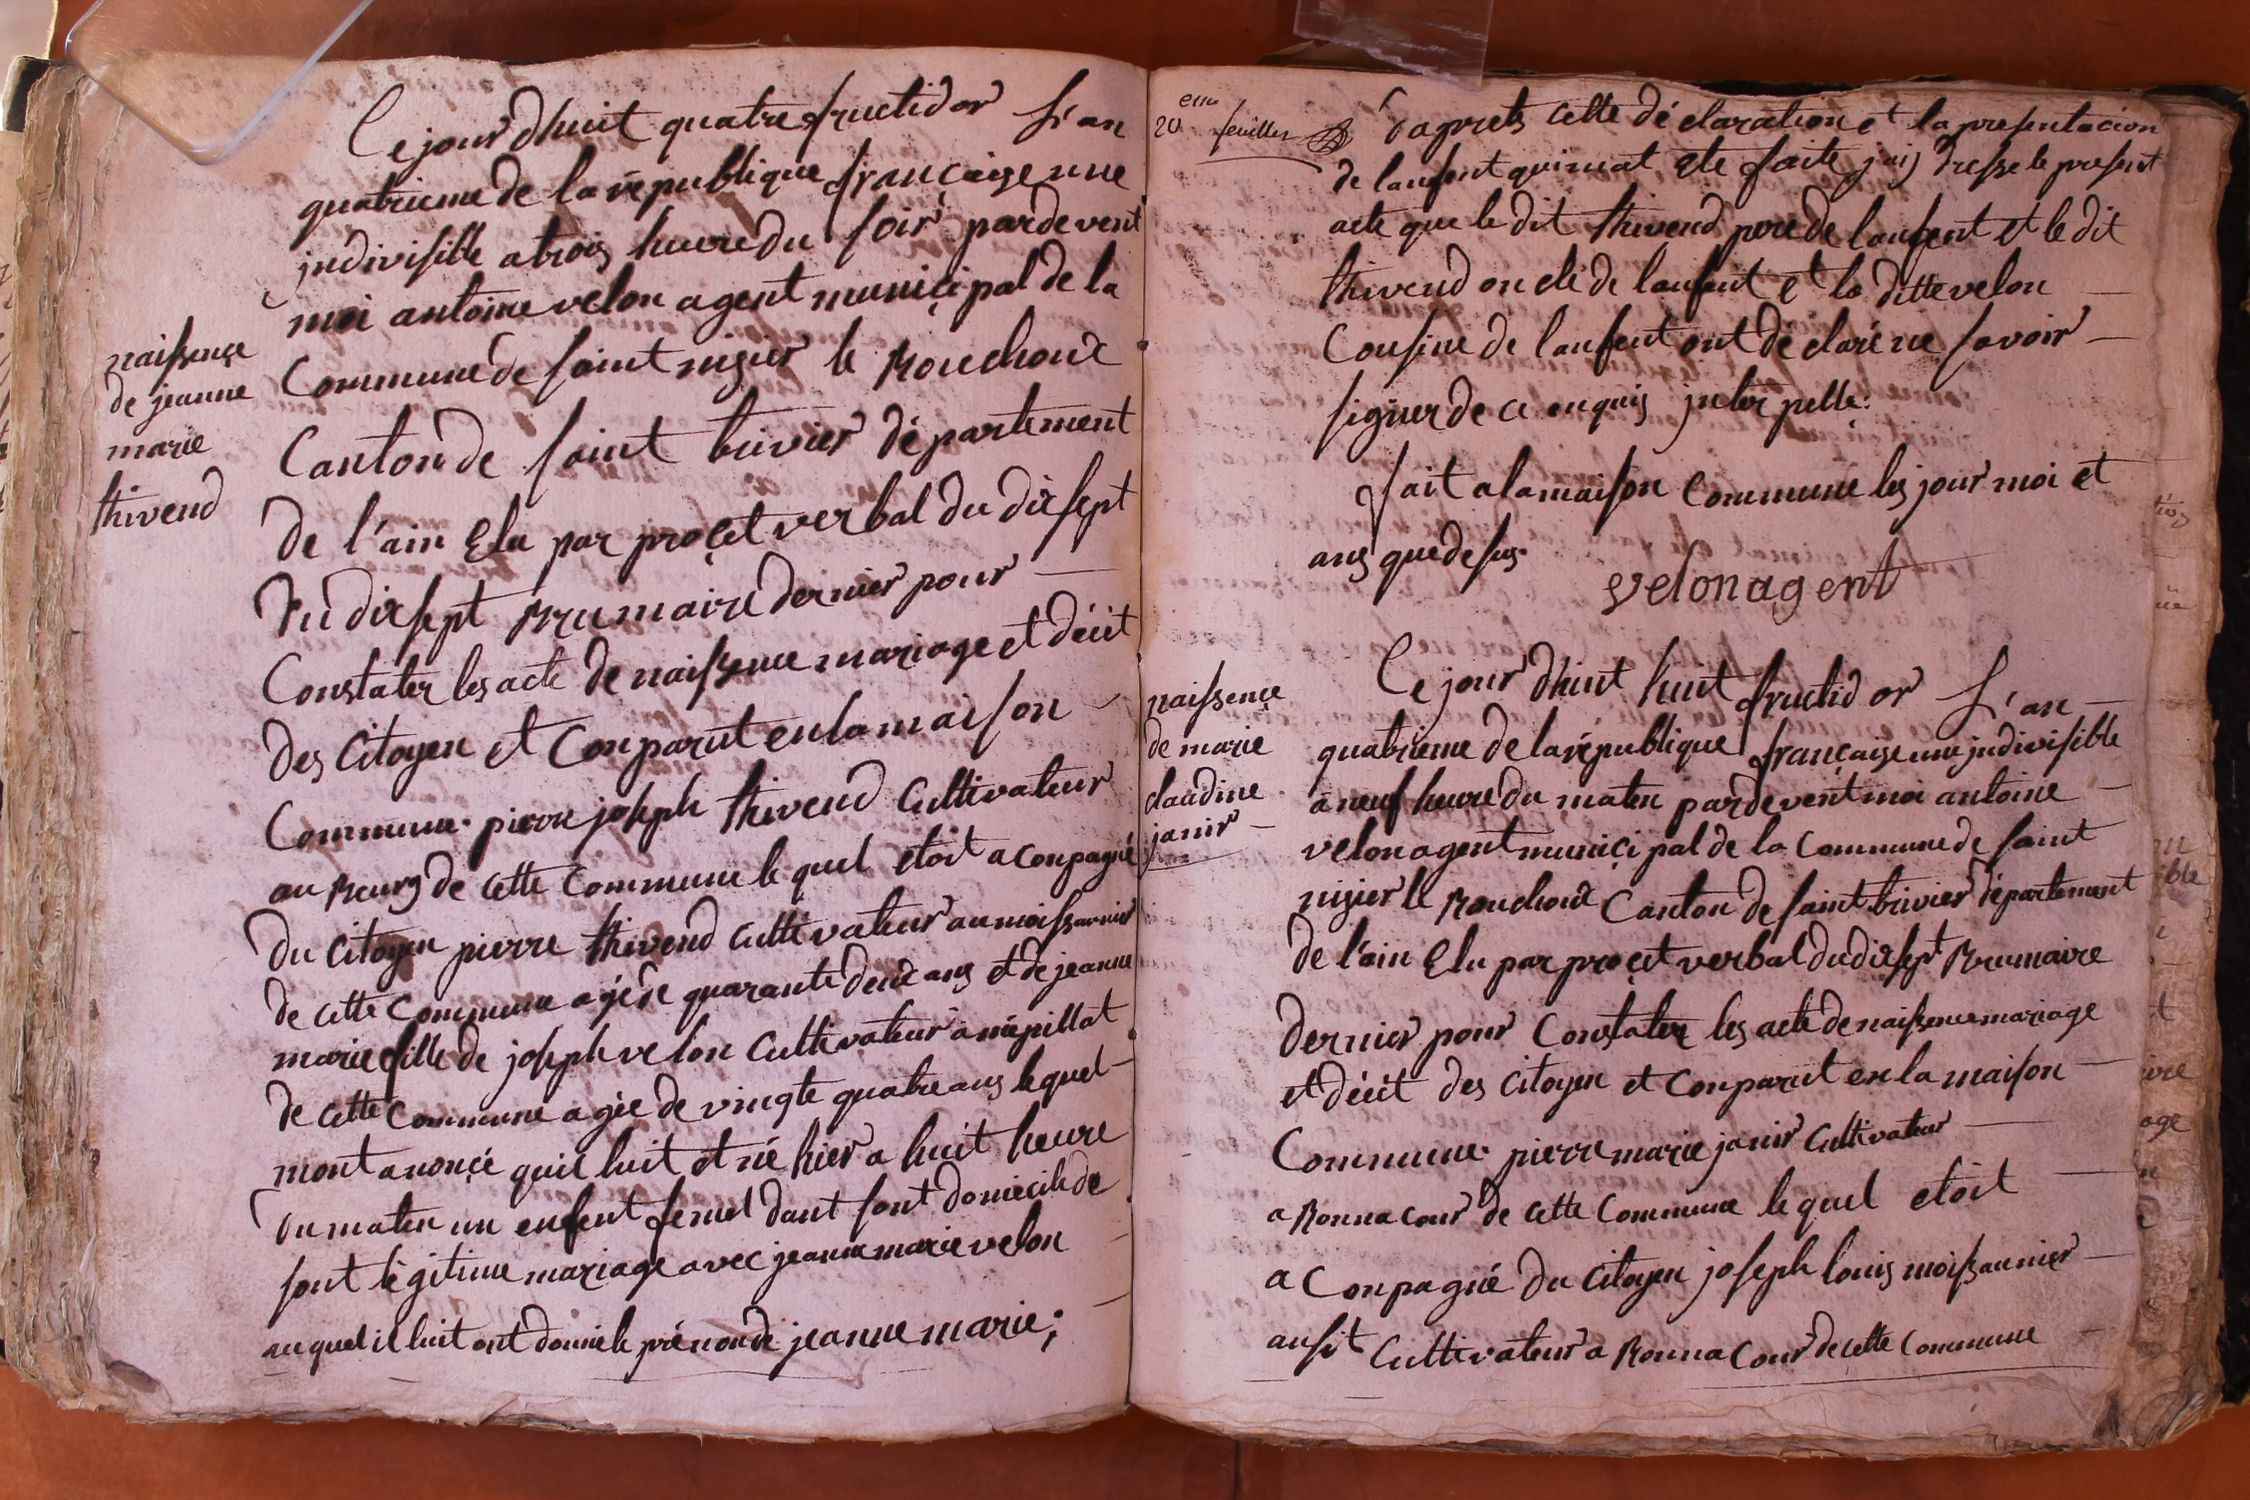 Cejourdhuit quatre fructidor L'an
quatrieme de la république françaige une
jndivisible a trois heure du soir pardevent
moi antoine velon agent municipal de la
Commune de saint nizier le Bouchoux
Canton de saint trivier département
De l'ain Elu par proçet verbal du dixsept
Du dixsept Brumaire dernier pour
Constater les acte de naissence mariage et dééit
Des Citoyen et Conparut en la maison
Commune. pierre joseph thivend Cultivateur
au Bourg de cette Commune le quel etoit aconpagné
Du Citoyen pierre thivend cultivateur au moissonnier
de cette Commune agé de quarante deux ans et de jeanne
marie fille de joseph velon Cultivateur a népillat
de cette Commune agée de vingte quatre ans lequel
mont anonçé quil luit et né hier a huit heure
Du maten un enfent femel dant sont domiecile de
sont légitime mariage avec jeanne marie velon
auquel il luit ont donné le prénon de jeanne marie;
naissençe
de jeanne
marie
thivend
20 eme feuillet
Daprets cette déclaration et la presentacion
de lanfent quimat ete faite jais dresse le present
acte que le dit thivend pere de lanfent et le dit
thivend oncle de lanfent et la ditte velon
Cousine de lanfent ont déclaré ne savoir
signer de ce enquis jnterpellé.
fait a la maison Commune les jour moi et
ans que desus.
velon agent
naissençe
de marie
claudine
janir
Cejour dhuit huit fructidor L'an
quatrieme de la république françaige une jndivisible
a neuf heure du maten pardevent moi antoine
velon agent municipal de la Commune de saint
nizier le Bouchoux Canton de saint trivier département
de l'ain Elu par proçet verbal du dixsept Brumaire
dernier pour Constater les acte de naissence mariage
et déeit des Citoyen et Conparut en la maison
Commune. pierre marie janir Cultivateur
a Bonnacour de cette Commune le quel etoit
aConpagné du Citoyen joseph louis moissonnier
ausit Cultivateur a Bonnacour de cette Commune